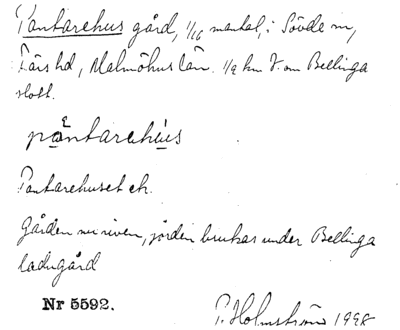 Pantarehus gård, 1/16 mantal, i Sövde sn,
Färs hd, Malmöhus län. 1/2 km V. om Bellinga
slott.
pantarehus
Pantarehuset ek.
Gården nu riven, jorden brukas under Bellinga
ladugård
Nr 5592.
P. Holmström 1998